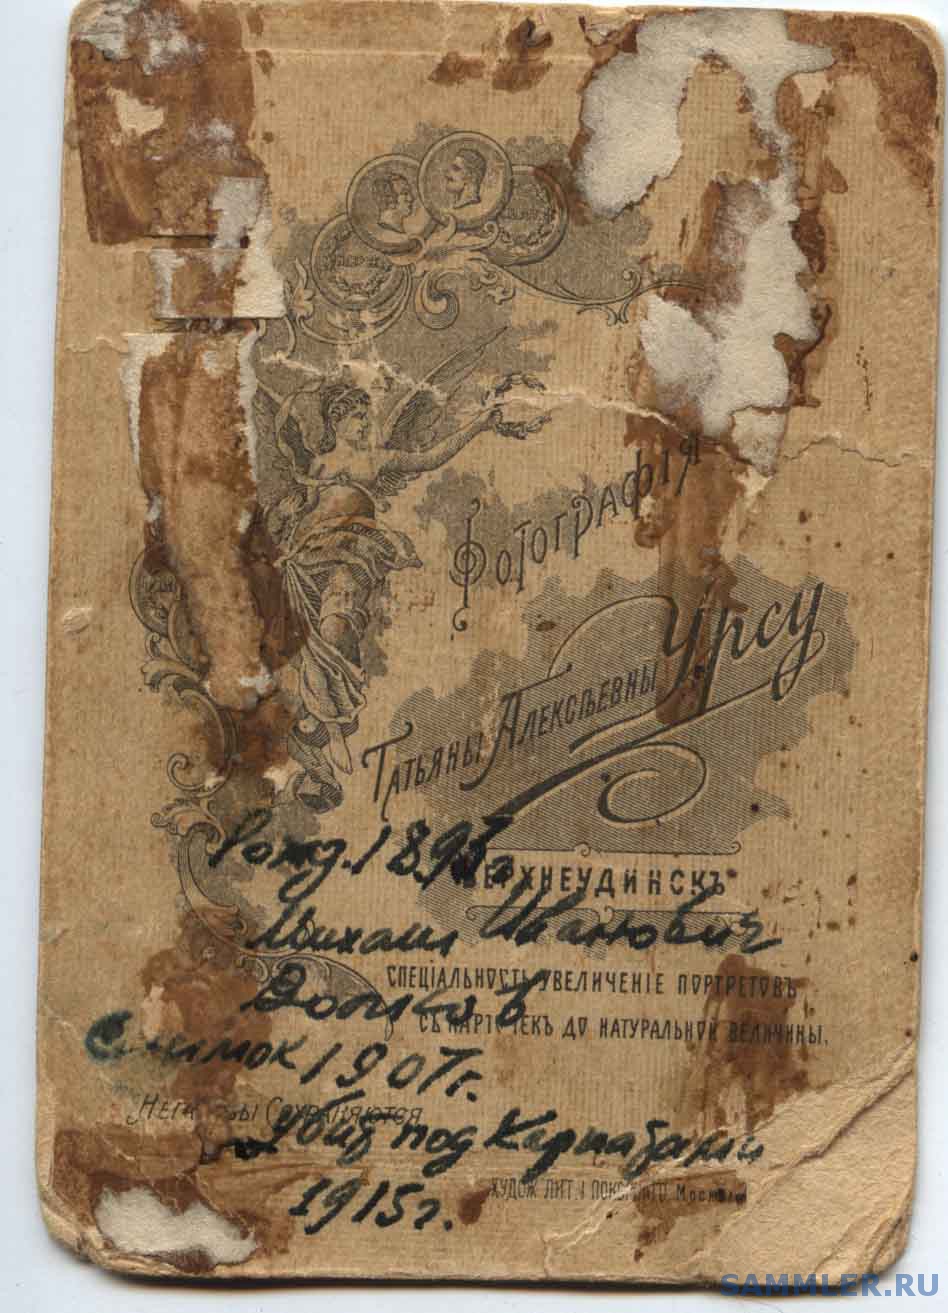 Фотографія
Татьяны Алексѣевны Урсу
ВЕРХНЕУДИНСКЪ
Рожд. 189 г.
Михаил Иванович
СПЕЦІАЛЬНОСТЬ УВЕЛИЧЕНІЕ ПОРТРЕТОВЪ
СЪ КАРТОЧЕКЪ ДО НАТУРАЛЬНОЙ ВЕЛИЧИНЫ.
Снимок 1907 г.
Негативы Сохраняются
Убит под Карпатами
ХУДОЖ. ЛИТ. Москва
1915 г.
SAMMLER.RU